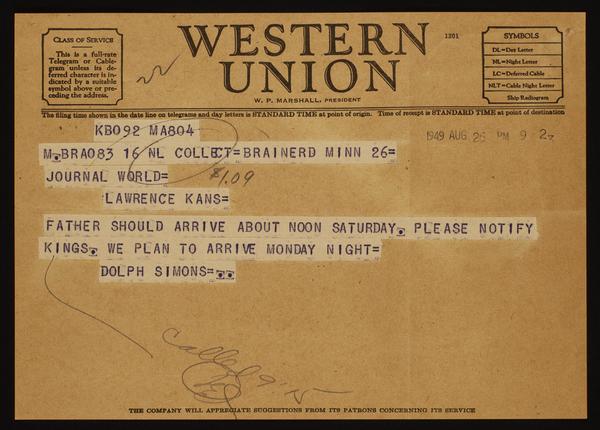 CLASS OF SERVICE
This is a full-rate
Telegram or Cable-
gram unless its de-
ferred character is in-
dicated by a suitable
symbol above or pre-
ceding the address.
WESTERN
UNION
W. P. MARSHALL, PRESIDENT
1201
SYMBOLS
DL=Day Letter
NL=Night Letter
LC=Deferred Cable
NLT=Cable Night Letter
Ship Radiogram
The filing time shown in the date line on telegrams and day letters is STANDARD TIME at point of origin. Time of receipt is STANDARD TIME at point of destination
KB092 MA804
1949 AUG 26 PM 9
M.BRA083 16 NL COLLECT=BRAINERD MINN 26=
JOURNAL WORLD=
$1.09
LAWRENCE KANS=
FATHER SHOULD ARRIVE ABOUT NOON SATURDAY. PLEASE NOTIFY
KINGS. WE PLAN TO ARRIVE MONDAY NIGHT=
DOLPH SIMONS=..
Called
THE COMPANY WILL APPRECIATE SUGGESTIONS FROM ITS PATRONS CONCERNING ITS SERVICE